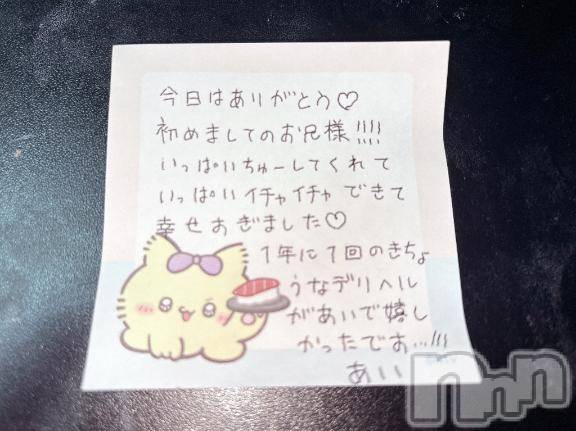 今日はありがとう♡
初めましてのお兄様!!!!
いっぱいちゅーしてくれて
いっぱいイチャイチャできて
幸せおぎました♡
1年に1回のきちょ
うなデリヘル
があいで嬉し
かったでお…!!!
あい
nnn